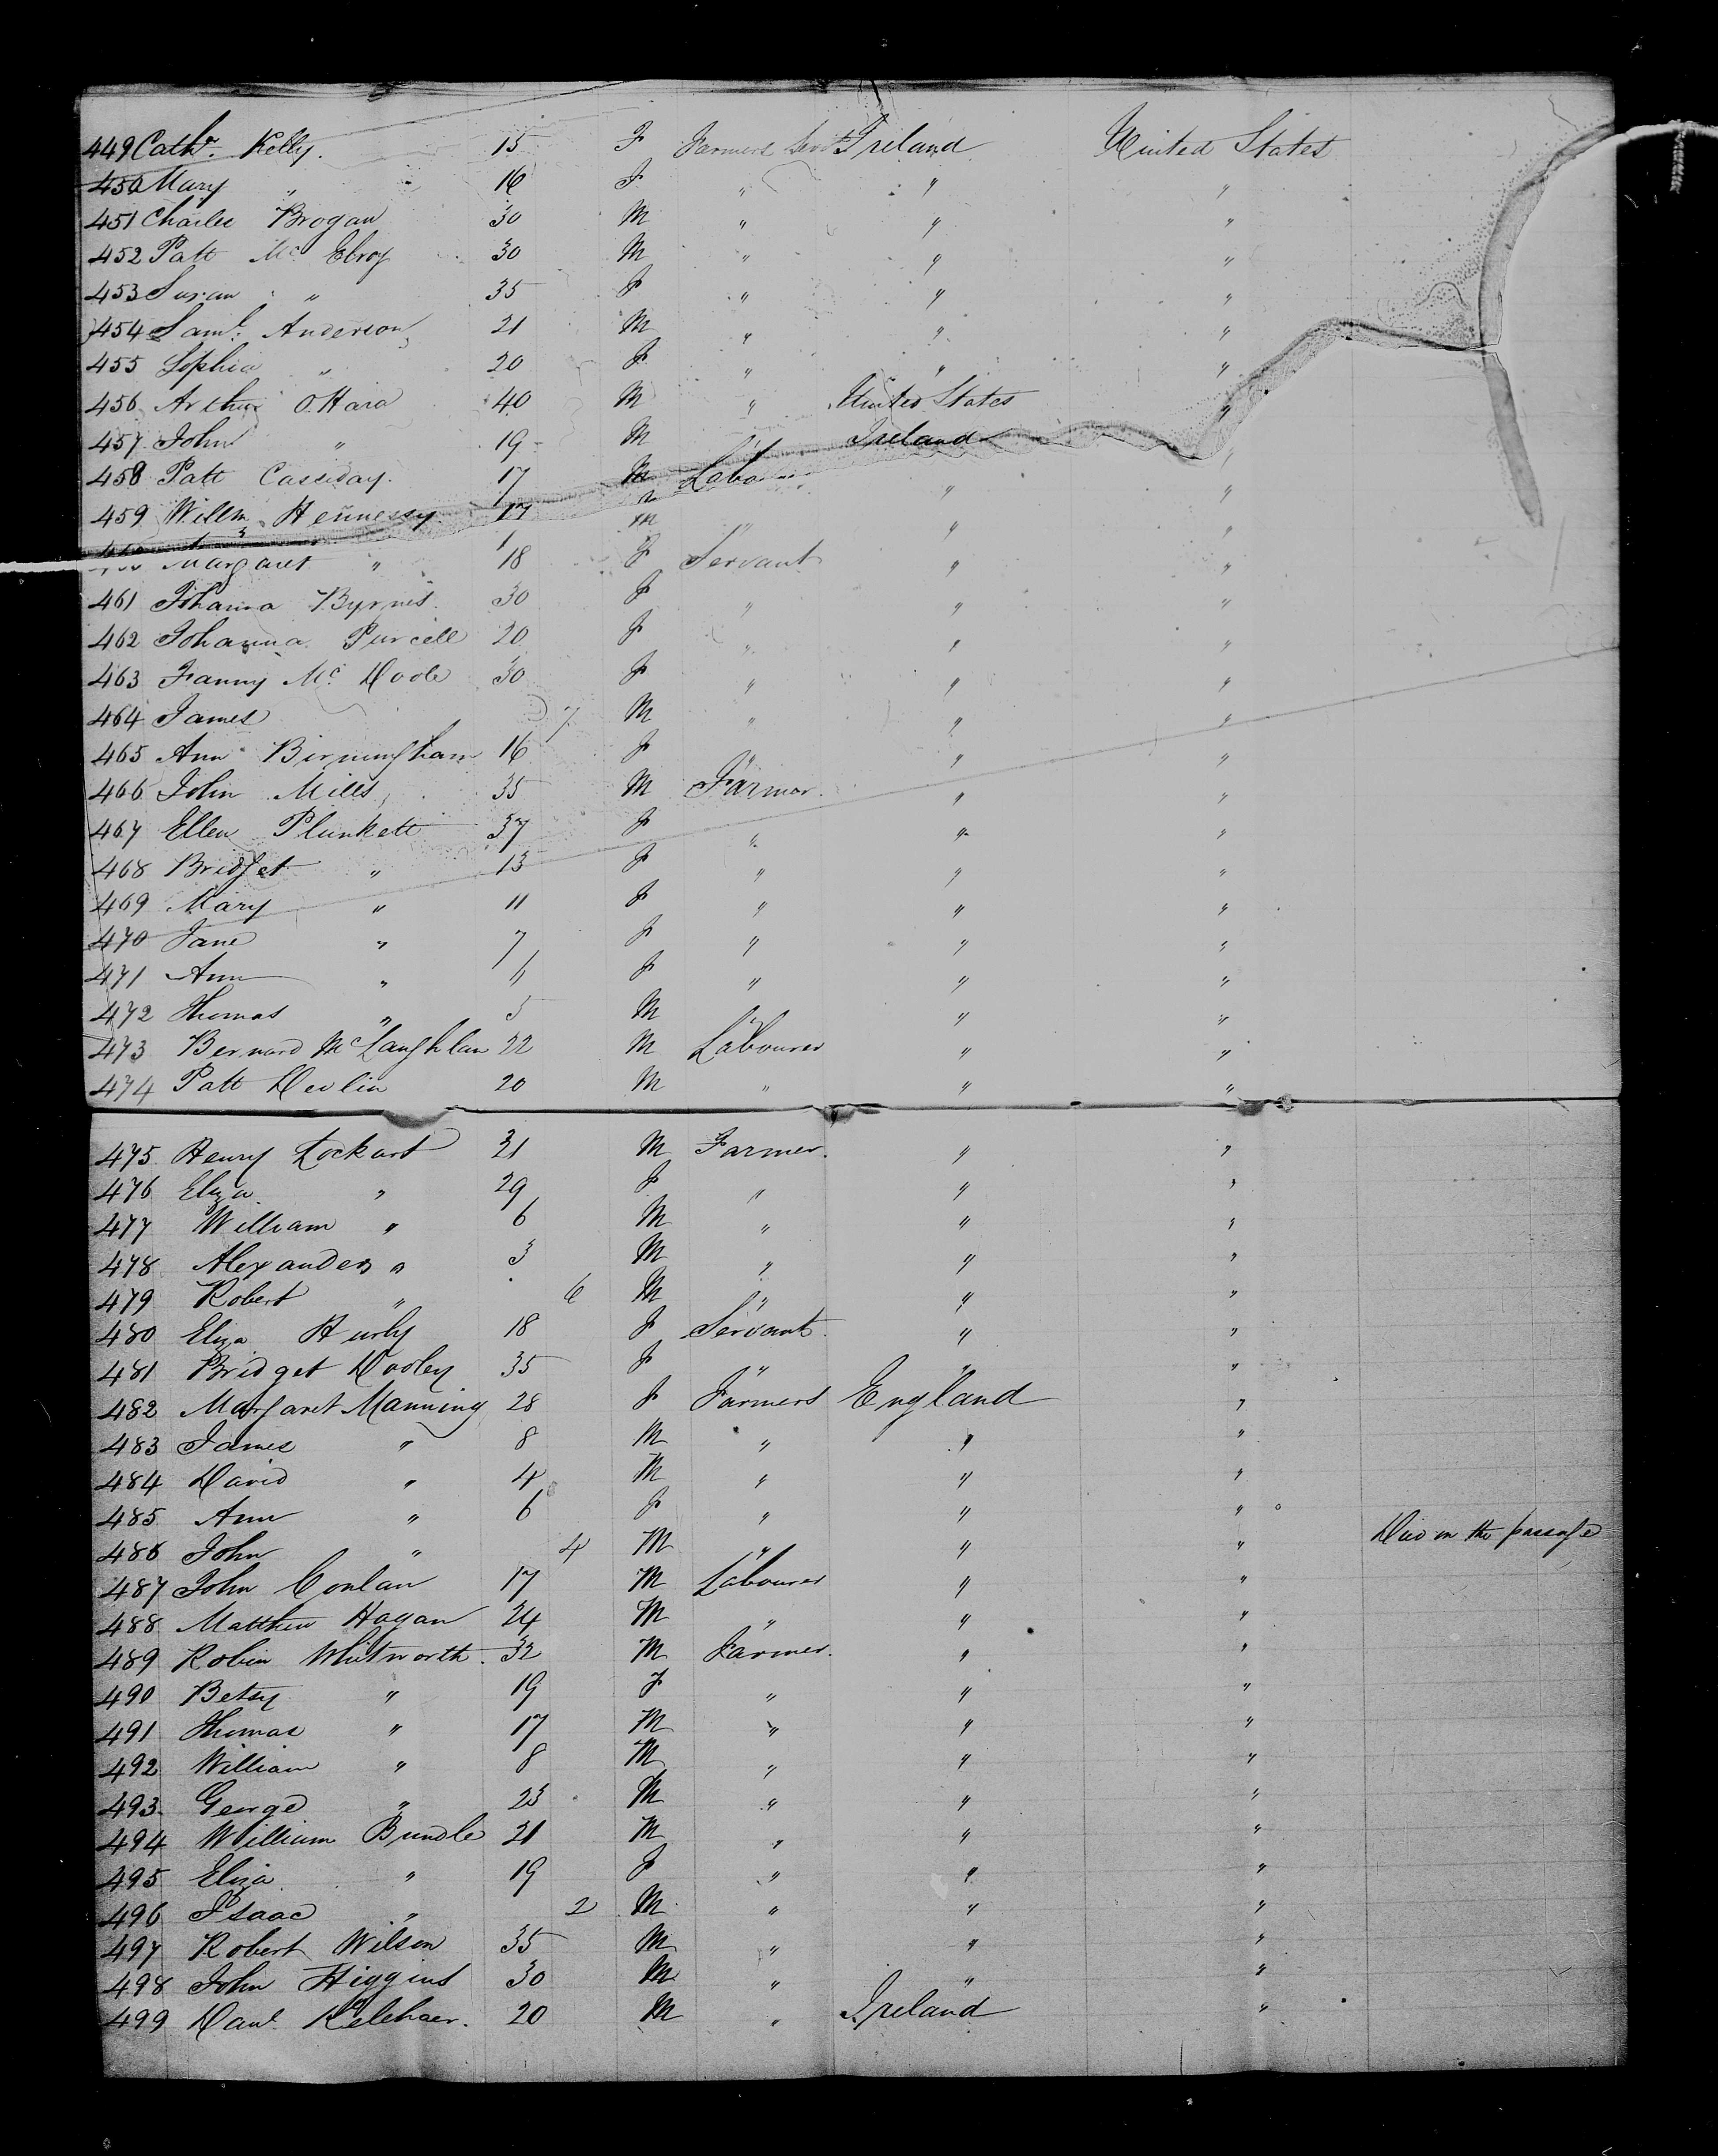 449 Cathr. Kelly. 15 F Farmers Servt Ireland United States
450 Mary " 16 F " " "
451 Charles Brogan 30 M " " "
452 Patt Mc Elroy 30 M " " "
453 Susan " 35 F " " "
454 Saml. Anderson 21 M " " "
455 Sophia " 20 F " " "
456 Arthur O.Hara 40 M " United States "
457 John " 19 M " Ireland "
458 Patt Cassiday. 17 M Labourer " "
459 Willm. Hennessy. 17 M " " "
460 Margaret " 18 F Servant " "
461 Johanna Byrnes 30 F " " "
462 Johanna Purcell 20 F " " "
463 Fanny Mc Doole 30 F " " "
464 James 7 M " " "
465 Ann Birmingham 16 F " " "
466 John Mills 35 M Farmer. " "
467 Ellen Plunkett 37 F " " "
468 Bridget " 13 F " " "
469 Mary " 11 F " " "
470 Jane " 7 F " " "
471 Ann " F " " "
472 Thomas " 5 M " " "
473 Bernard McLaughlan 22 M Labourer " "
474 Patt Devlin 20 M " " "
475 Henry Lockart 31 M Farmer. " "
476 Eliza " 29 F " " "
477 William " 6 M " " "
478 Alexander " 3 M " " "
479 Robert " 6 M " " "
480 Eliza Hurly 18 F Servant. " "
481 Bridget Dooley 35 F " " "
482 Margaret Manning 28 F Farmers England "
483 James " 8 M " " "
484 David " 4 M " " "
485 Ann " 6 F " " "
486 John " 4 M " " " Died on the passage
487 John Conlan 17 M Labourer " "
488 Matthew Hagan 24 M " " "
489 Robin Whitworth. 32 M Farmer. " "
490 Betsy " 19 F " " "
491 Thomas " 17 M " " "
492 William " 8 M " " "
493 George " 23 M " " "
494 William Bundle 21 M " " "
495 Eliza " 19 F " " "
496 Isaac " 2 M " " "
497 Robert Wilson 35 M " " "
498 John Higgins 30 M " " "
499 Danl. Kelehaer. 20 M " Ireland "